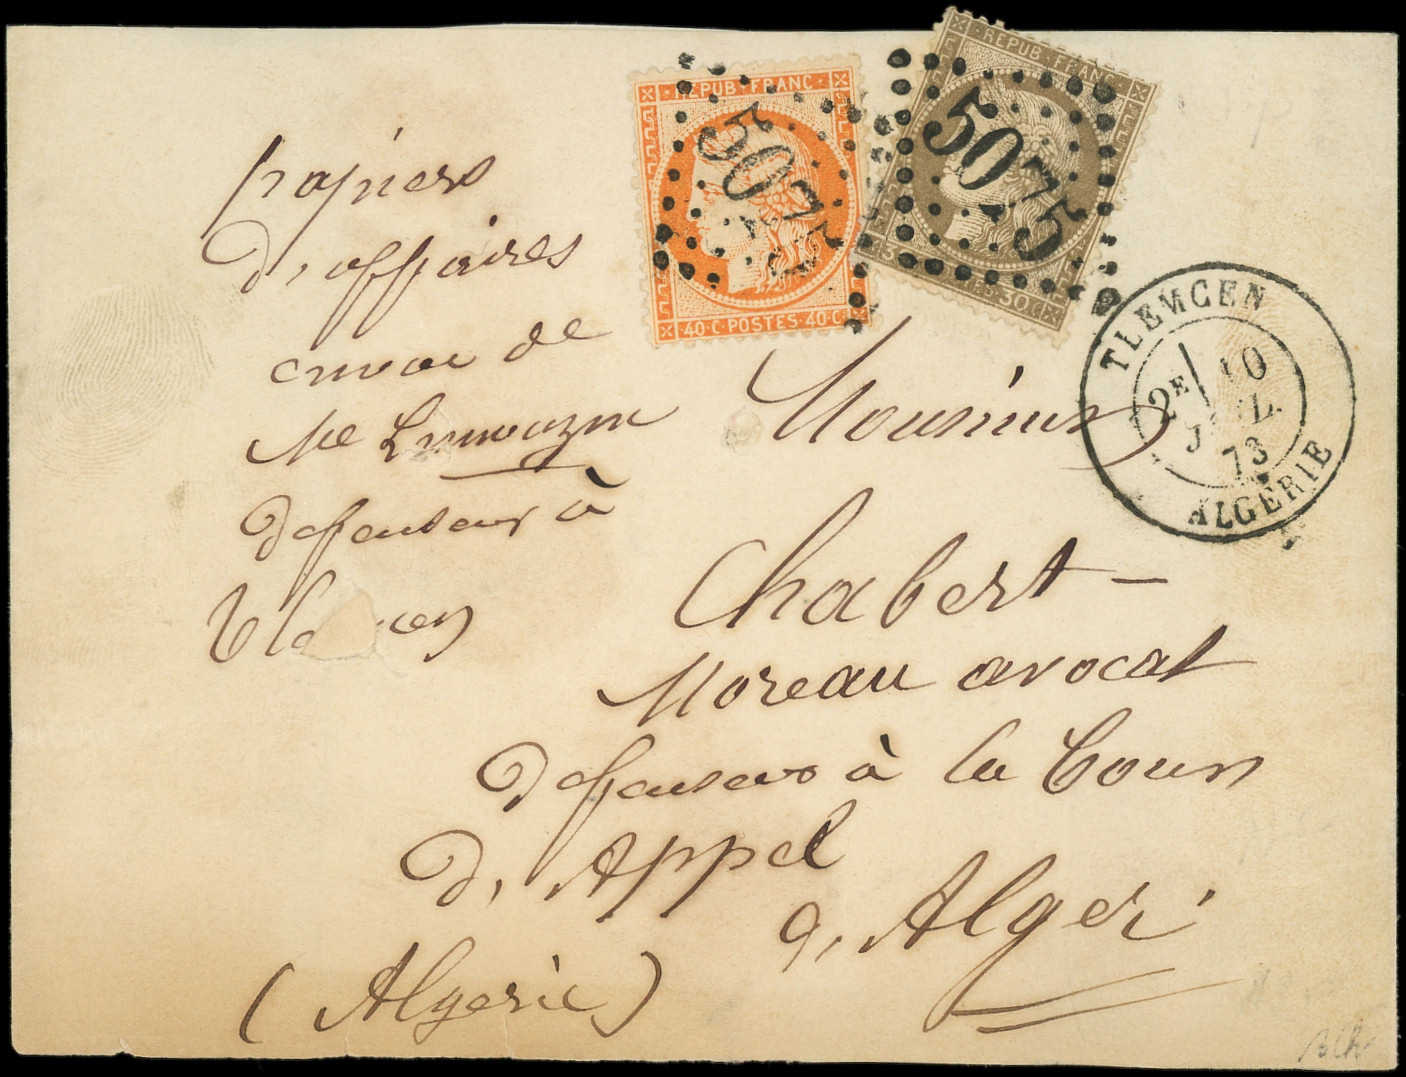 REPUB·FRANC·
40·C·POSTES·40·C·
5075
·REPUB·FRANC·
30·C
5075
TLEMCEN
2E 10
JUIL.
73
ALGÉRIE
papiers
d'affaires
envoi de
Me
defenseur à
Monsieur
Chabert-
Moreau avocat
defenseur à la Cour
d'Appel
d'Alger
(Algerie)